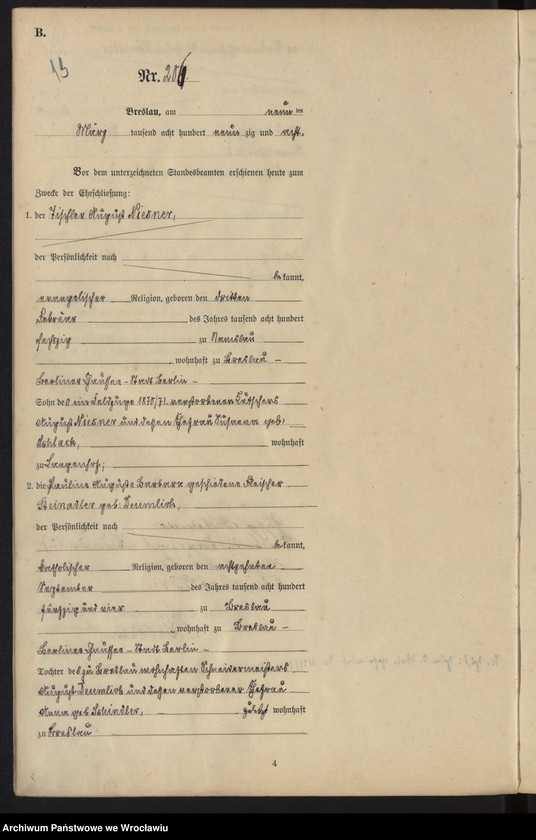 B.
13
Nr. 206.
Breslau, am neunten
März tausend acht hundert neunzig und acht.
Vor dem unterzeichneten Standesbeamten erschienen heute zum
Zwecke der Eheschließung:
1. der Tischler August Niesner,
der Persönlichkeit nach
bekannt,
evangelischer Religion, geboren den dritten
Februar des Jahres tausend acht hundert
sechzig zu Namslau
, wohnhaft zu Breslau -
Berliner Chaussee - Stadt Berlin -
Sohn des im Feldzuge 1870/71 verstorbenen Kutschers
August Niesner und dessen Ehefrau Susanna geb.
wohnhaft
zu Langenhof;
2. die Pauline Auguste Barbara geschiedene Fleischer
Steinadler geb.
der Persönlichkeit nach
bekannt,
katholischer Religion, geboren den achtzehnten
September des Jahres tausend acht hundert
fünfzig und vier zu Breslau
, wohnhaft zu Breslau -
Berliner Chaussee - Stadt Berlin -
Tochter des zu Breslau wohnhaften Schneidermeisters
August und dessen verstorbener Ehefrau
Anna geb. Schindler, zuletzt wohnhaft
zu Breslau
4
Archiwum Państwowe we Wrocławiu